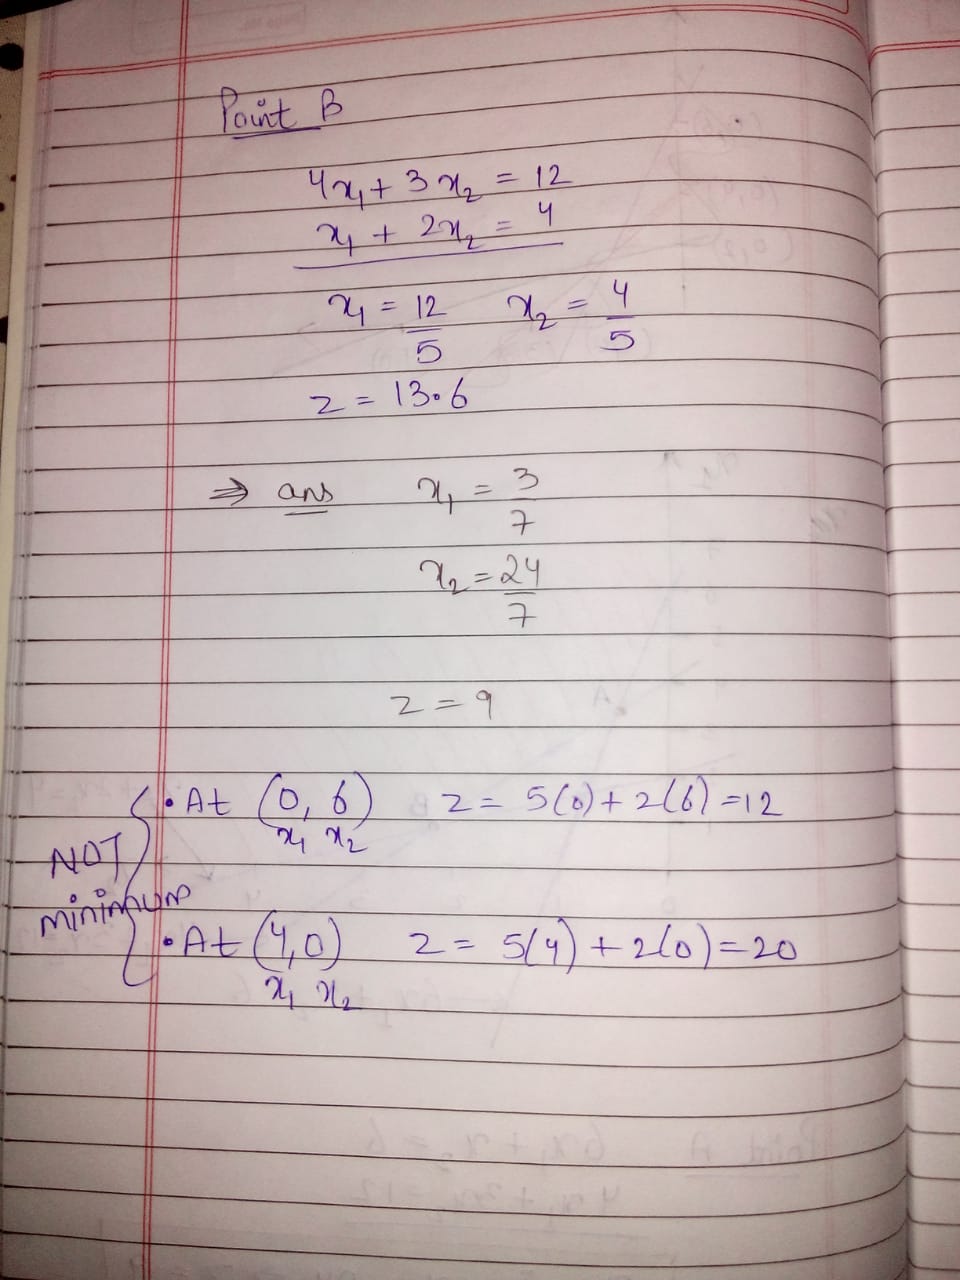 Point B
4x₁ + 3x₂ = 12
x₁ + 2x₂ = 4
x₁ = 12/5 x₂ = 4/5
z = 13.6
⇒ ans x₁ = 3/7
x₂ = 24/7
z = 9
NOT minimum
• At (0, 6) z = 5(0) + 2(6) = 12
x₁ x₂
• At (4,0) z = 5(4) + 2(0) = 20
x₁ x₂